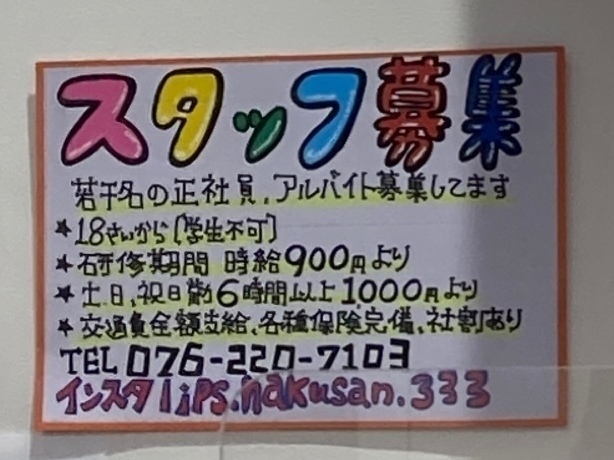 スタッフ募集
若干名の正社員、アルバイト募集してます
★18さいから[学生不可]
★研修期間 時給900円より
★土、日、祝日働6時間以上1000円より
★交通費全額支給、各種保険完備、社割あり
TEL 076-220-7103
インスタlips.hakusan.333